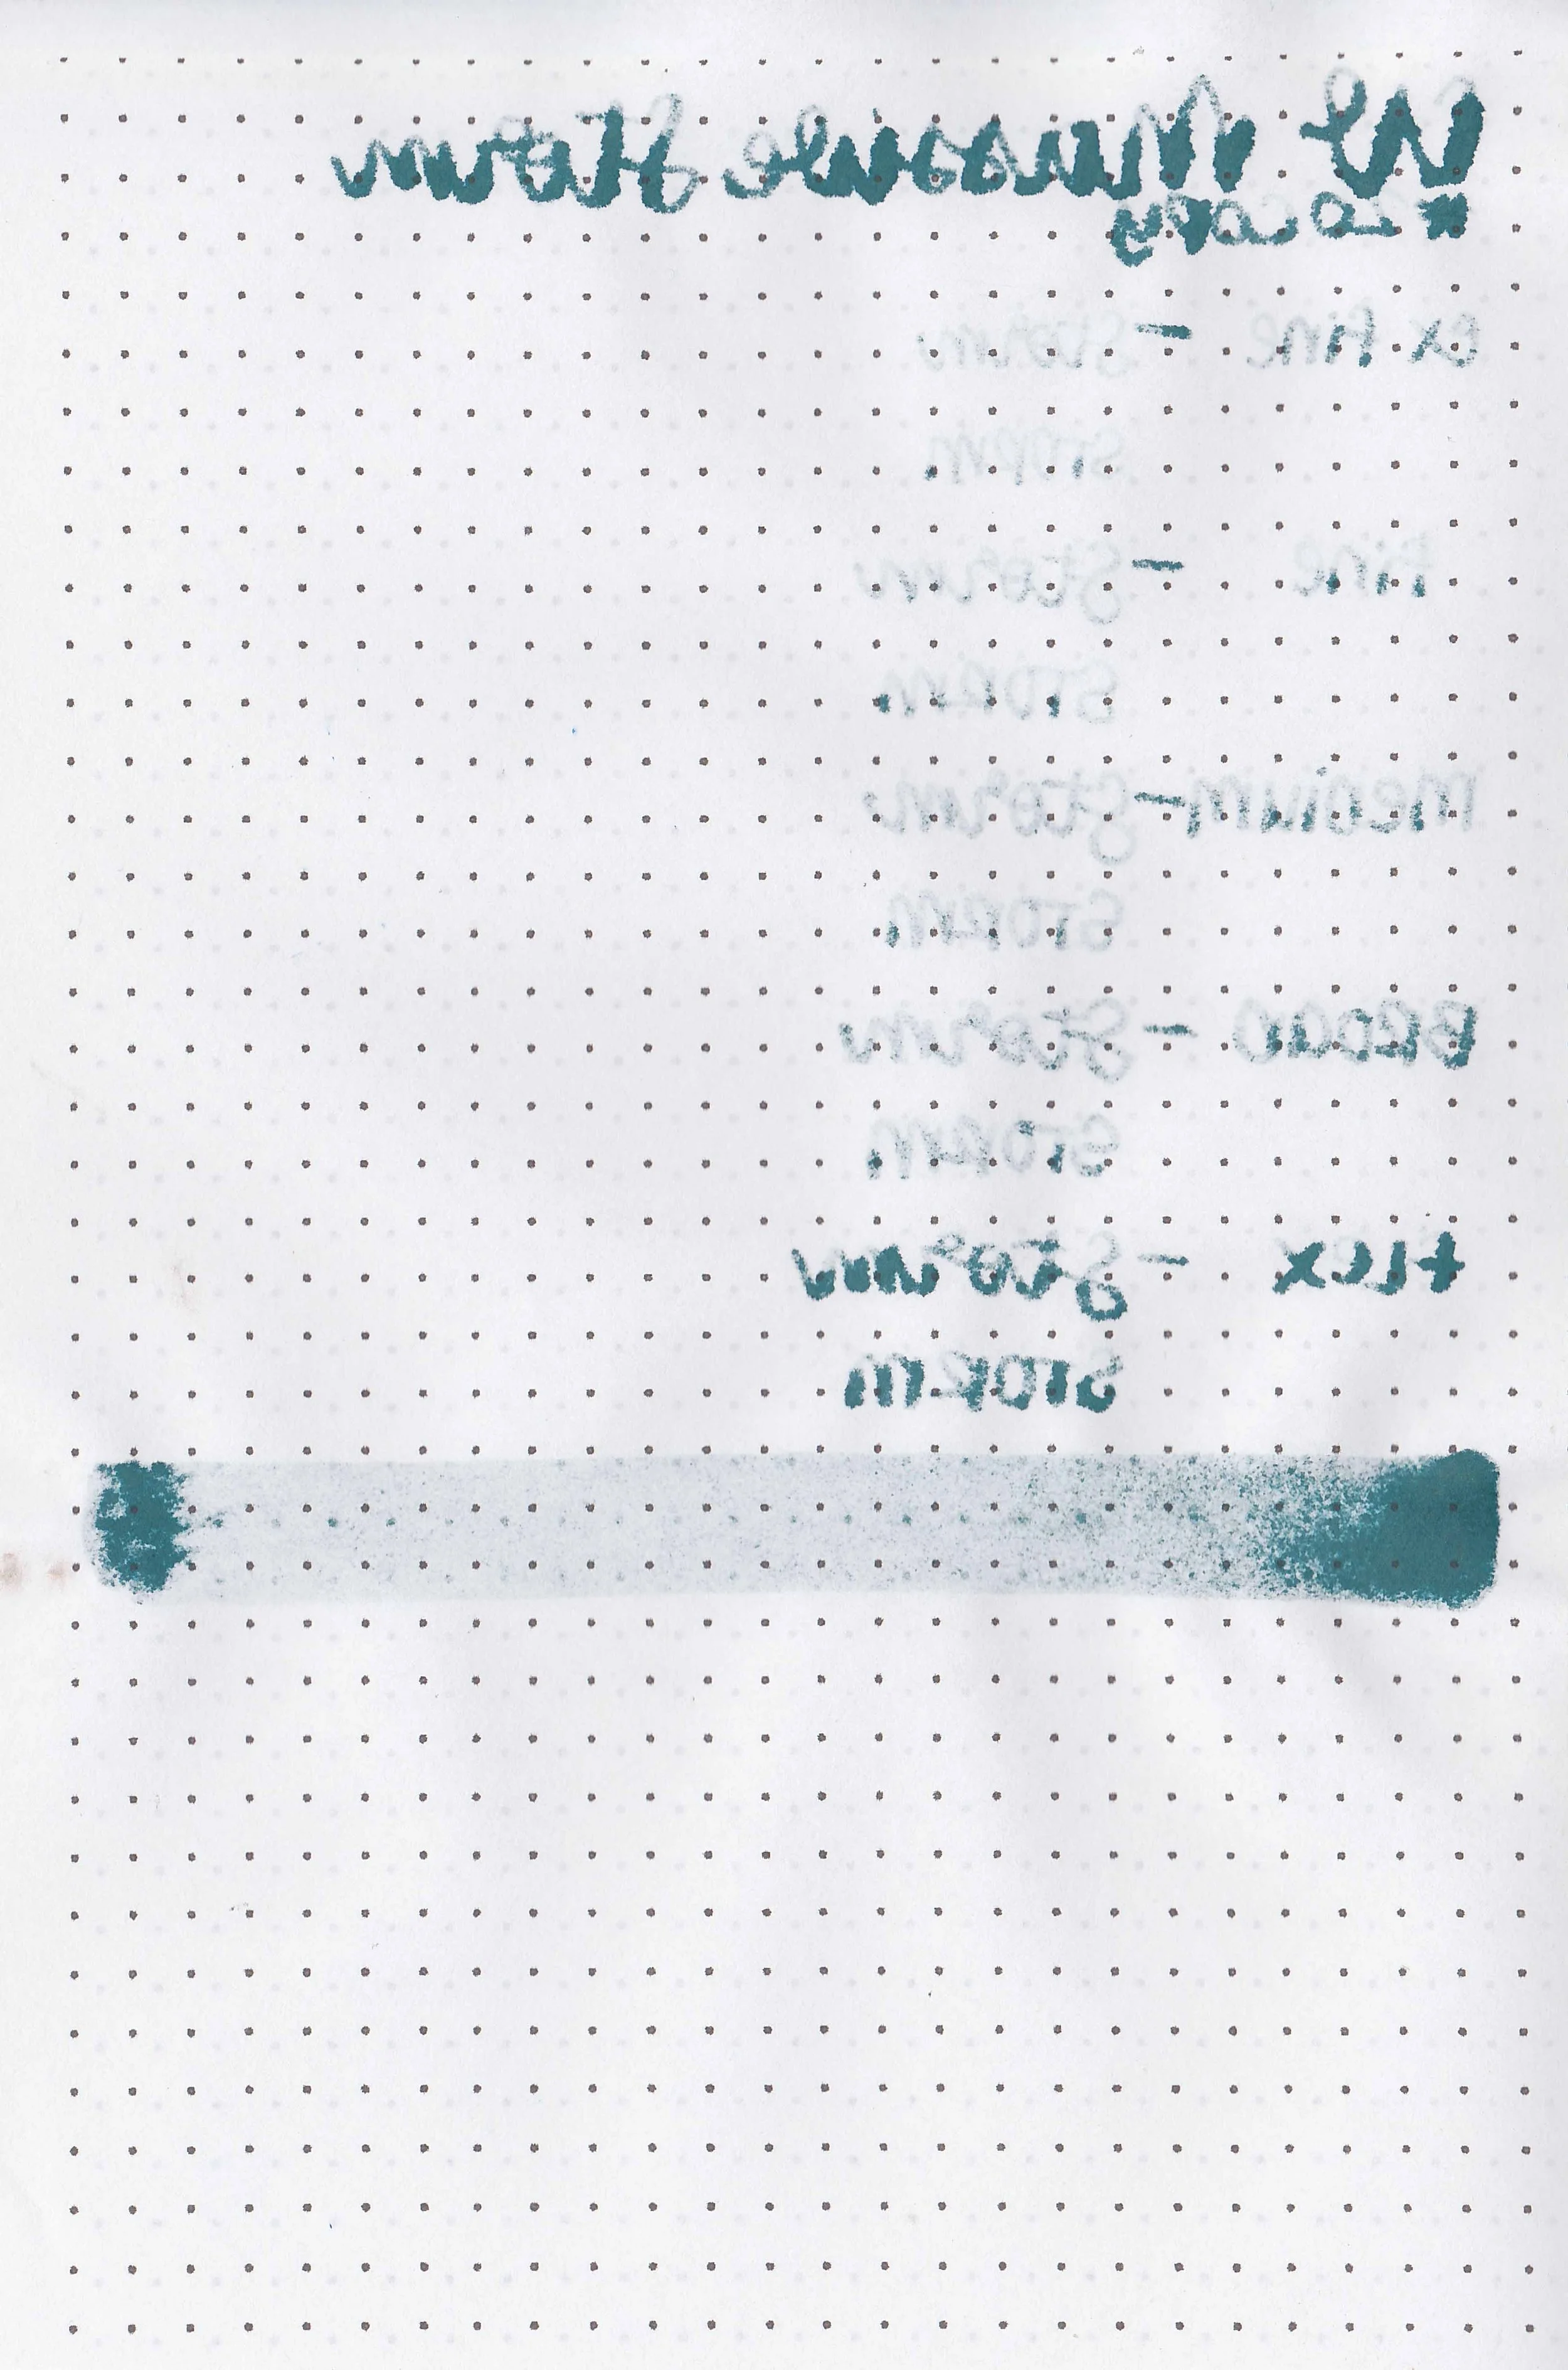 Storm
20 copy
ex. fine - Storm
STORM
fine - Storm
STORM
medium - Storm
STORM
BROAD - Storm
STORM
flex - Storm
STORM